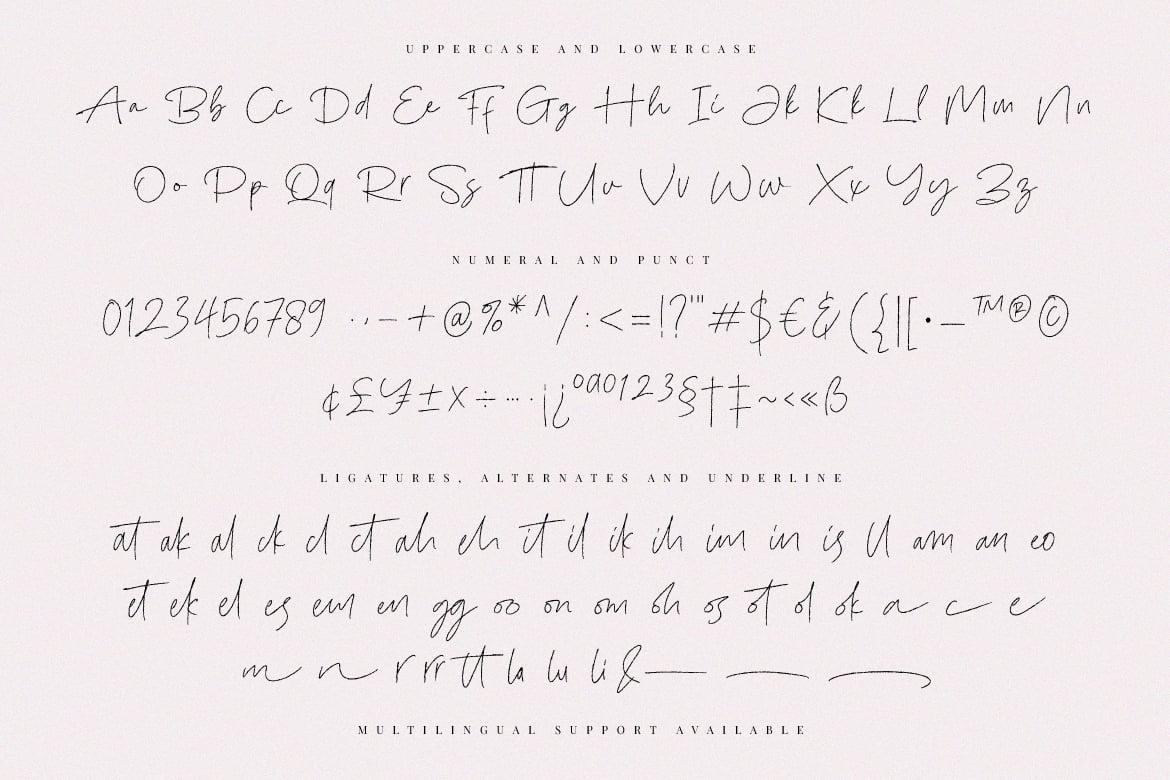 UPPERCASE AND LOWERCASE
Aa Bb Cc Dd Ee Ff Gg Hh Ii Jk Kk Ll Mm Nn
Oo Pp Qq Rr Ss Tt Uu Vv Ww Xx Yy Zz
NUMERAL AND PUNCT
0123456789 .,-+@%*^/:<=!?'"#$€&({|[•_™®©
¢£¥±×÷…·¡¿ºª0123§†‡~‹«ß
LIGATURES, ALTERNATES AND UNDERLINE
at ak al ck cl ct ah ch it il ik ih im in is ll am an eo
et ek el es em en gg oo on om oh os ot ol ok a c e
m n r rr tt la lu li &
MULTILINGUAL SUPPORT AVAILABLE